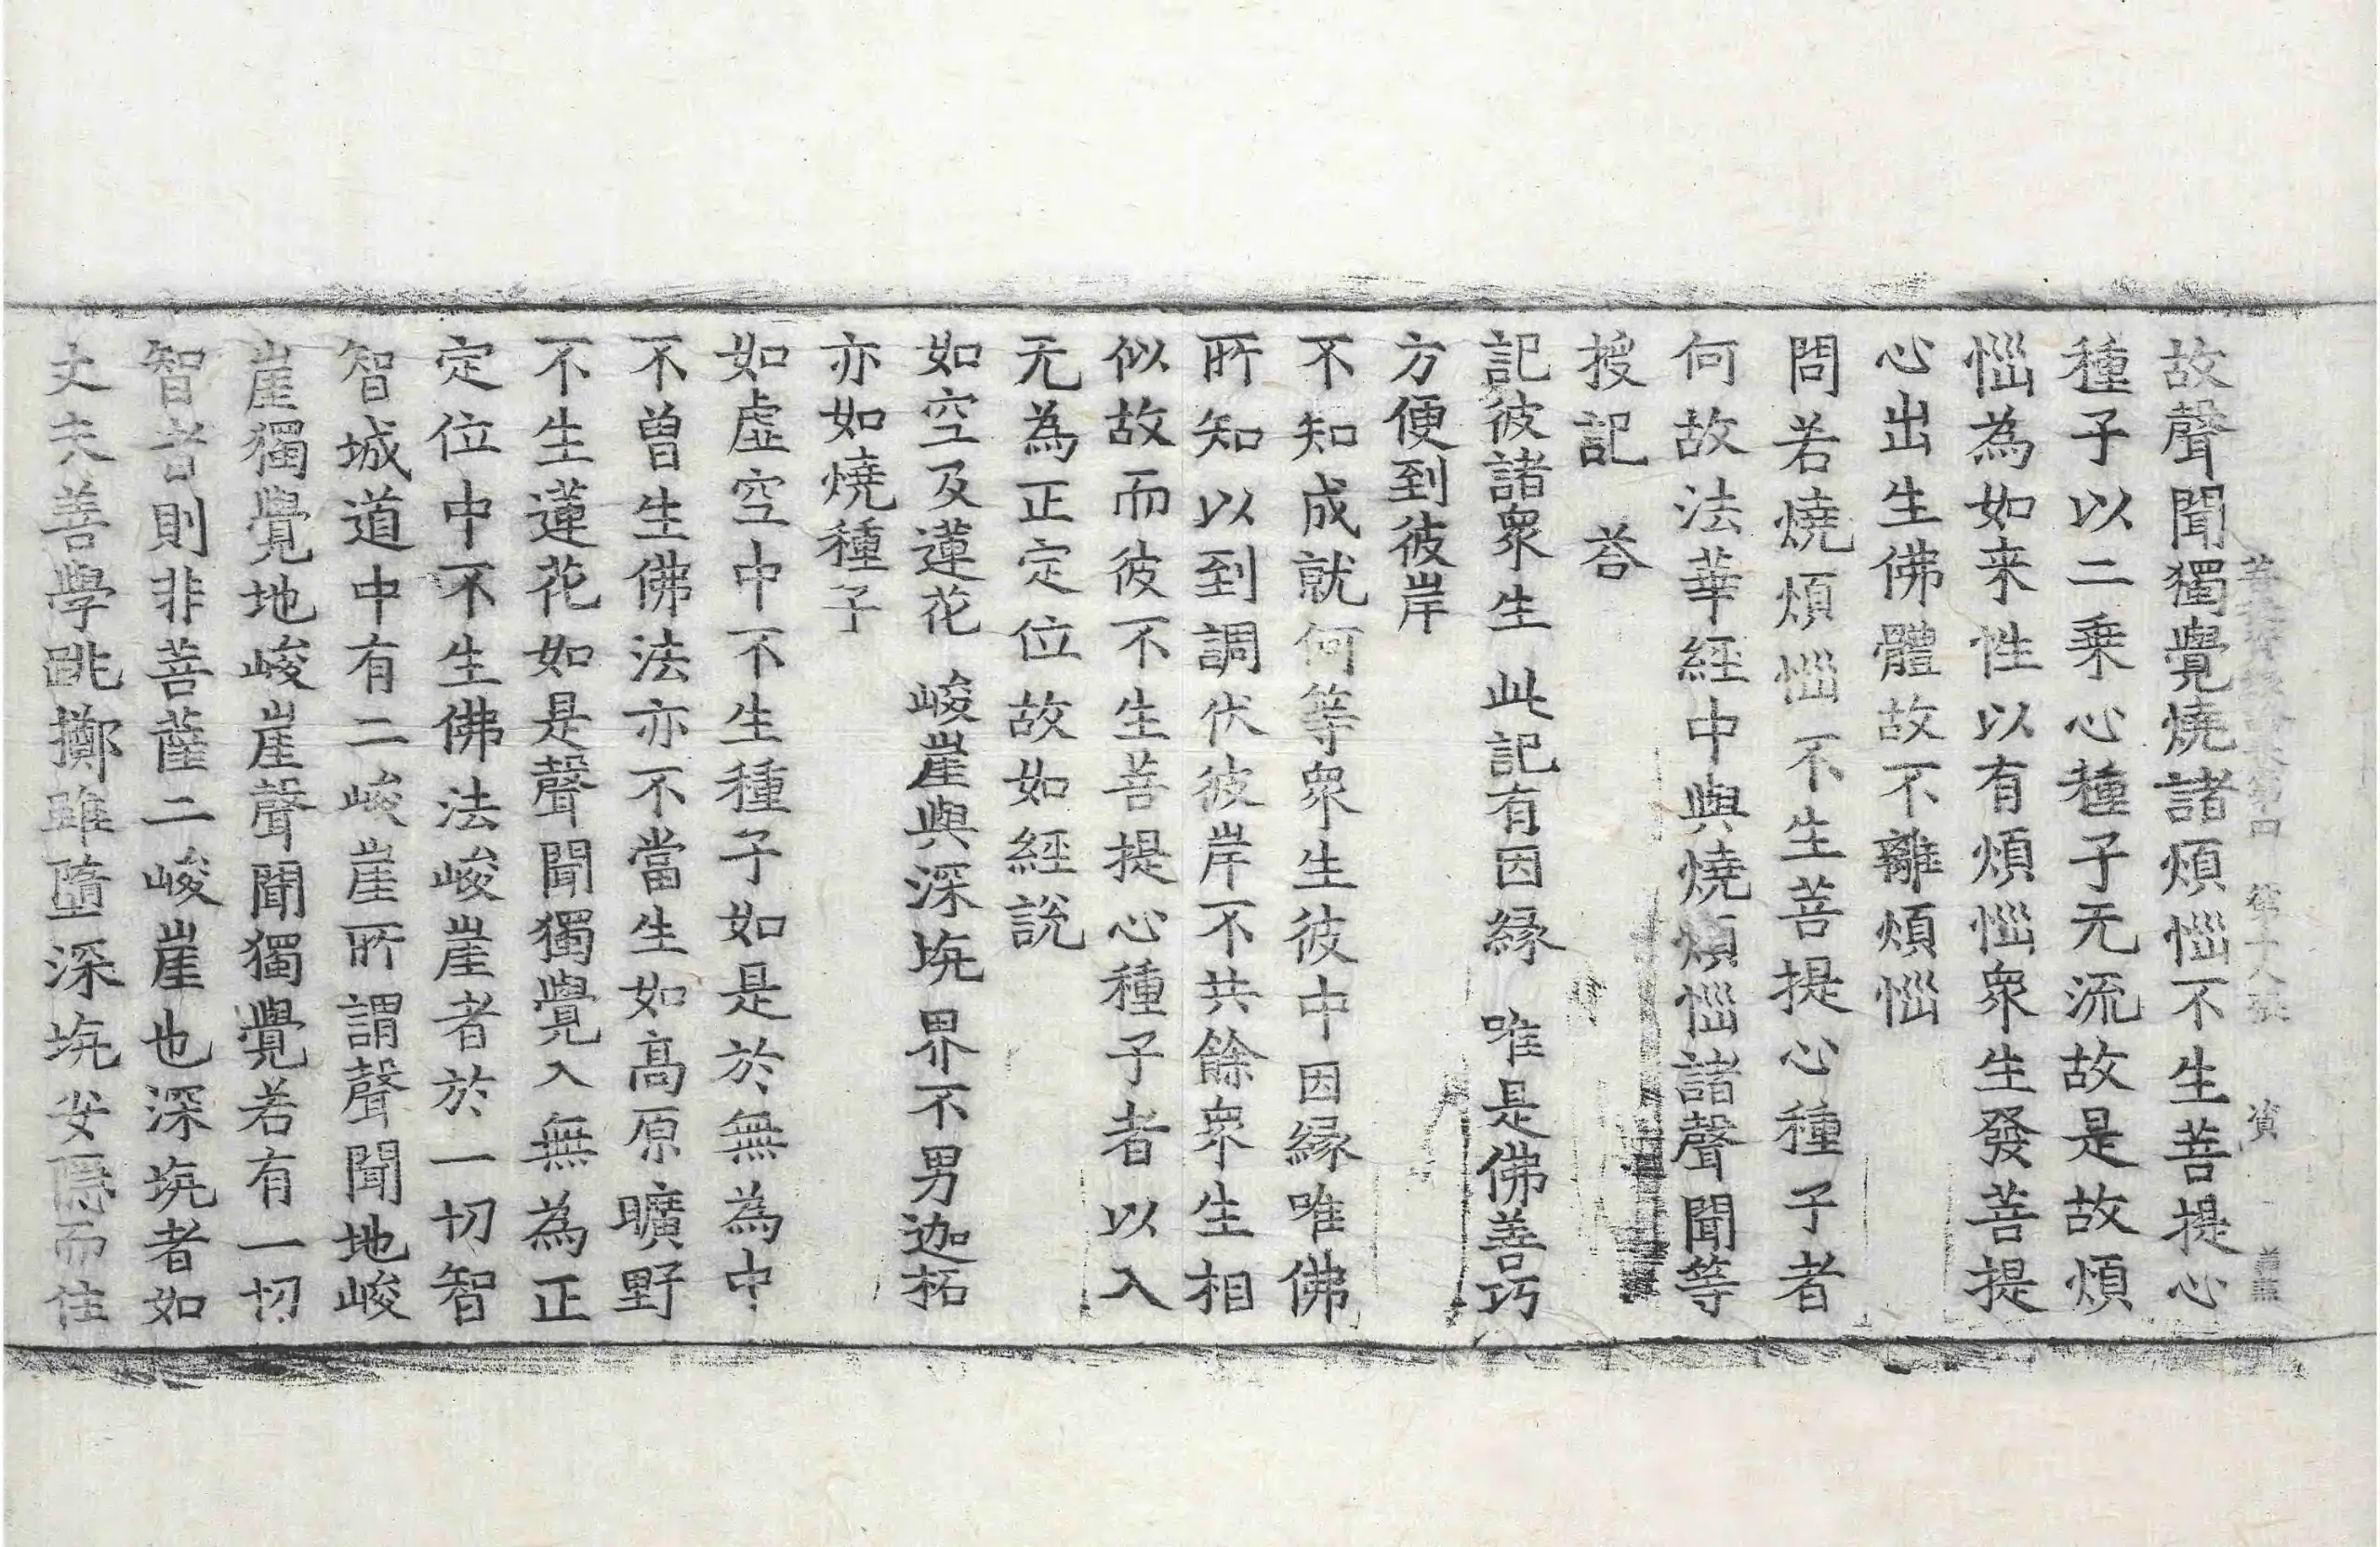 故聲聞獨覺燒諸煩惱不生菩提心
種子以二乘心種子无流故是故煩
惱為如来性以有煩惱衆生發菩提
心出生佛體故不離煩惱
問若燒煩惱不生菩提心種子者
何故法華經中與燒煩惱諸聲聞等
授記 荅
記彼諸衆生 此記有因縁 唯是佛善巧
方便到彼岸
不知成就何等衆生彼中因縁唯佛
所知以到調伏彼岸不共餘衆生相
似故而彼不生菩提心種子者以入
无為正定位故如經說
如空及蓮花 峻崖與深坑 界不男迦柘
亦如燒種子
如虛空中不生種子如是於無為中
不曾生佛法亦不當生如高原曠野
不生蓮花如是聲聞獨覺入無為正
定位中不生佛法峻崖者於一切智
智城道中有二峻崖所謂聲聞地峻
崖獨覺地峻崖聲聞獨覺若有一切
智者則非菩薩二峻崖也深坑者如
丈夫善學跳擲雖墮深坑安隱而住